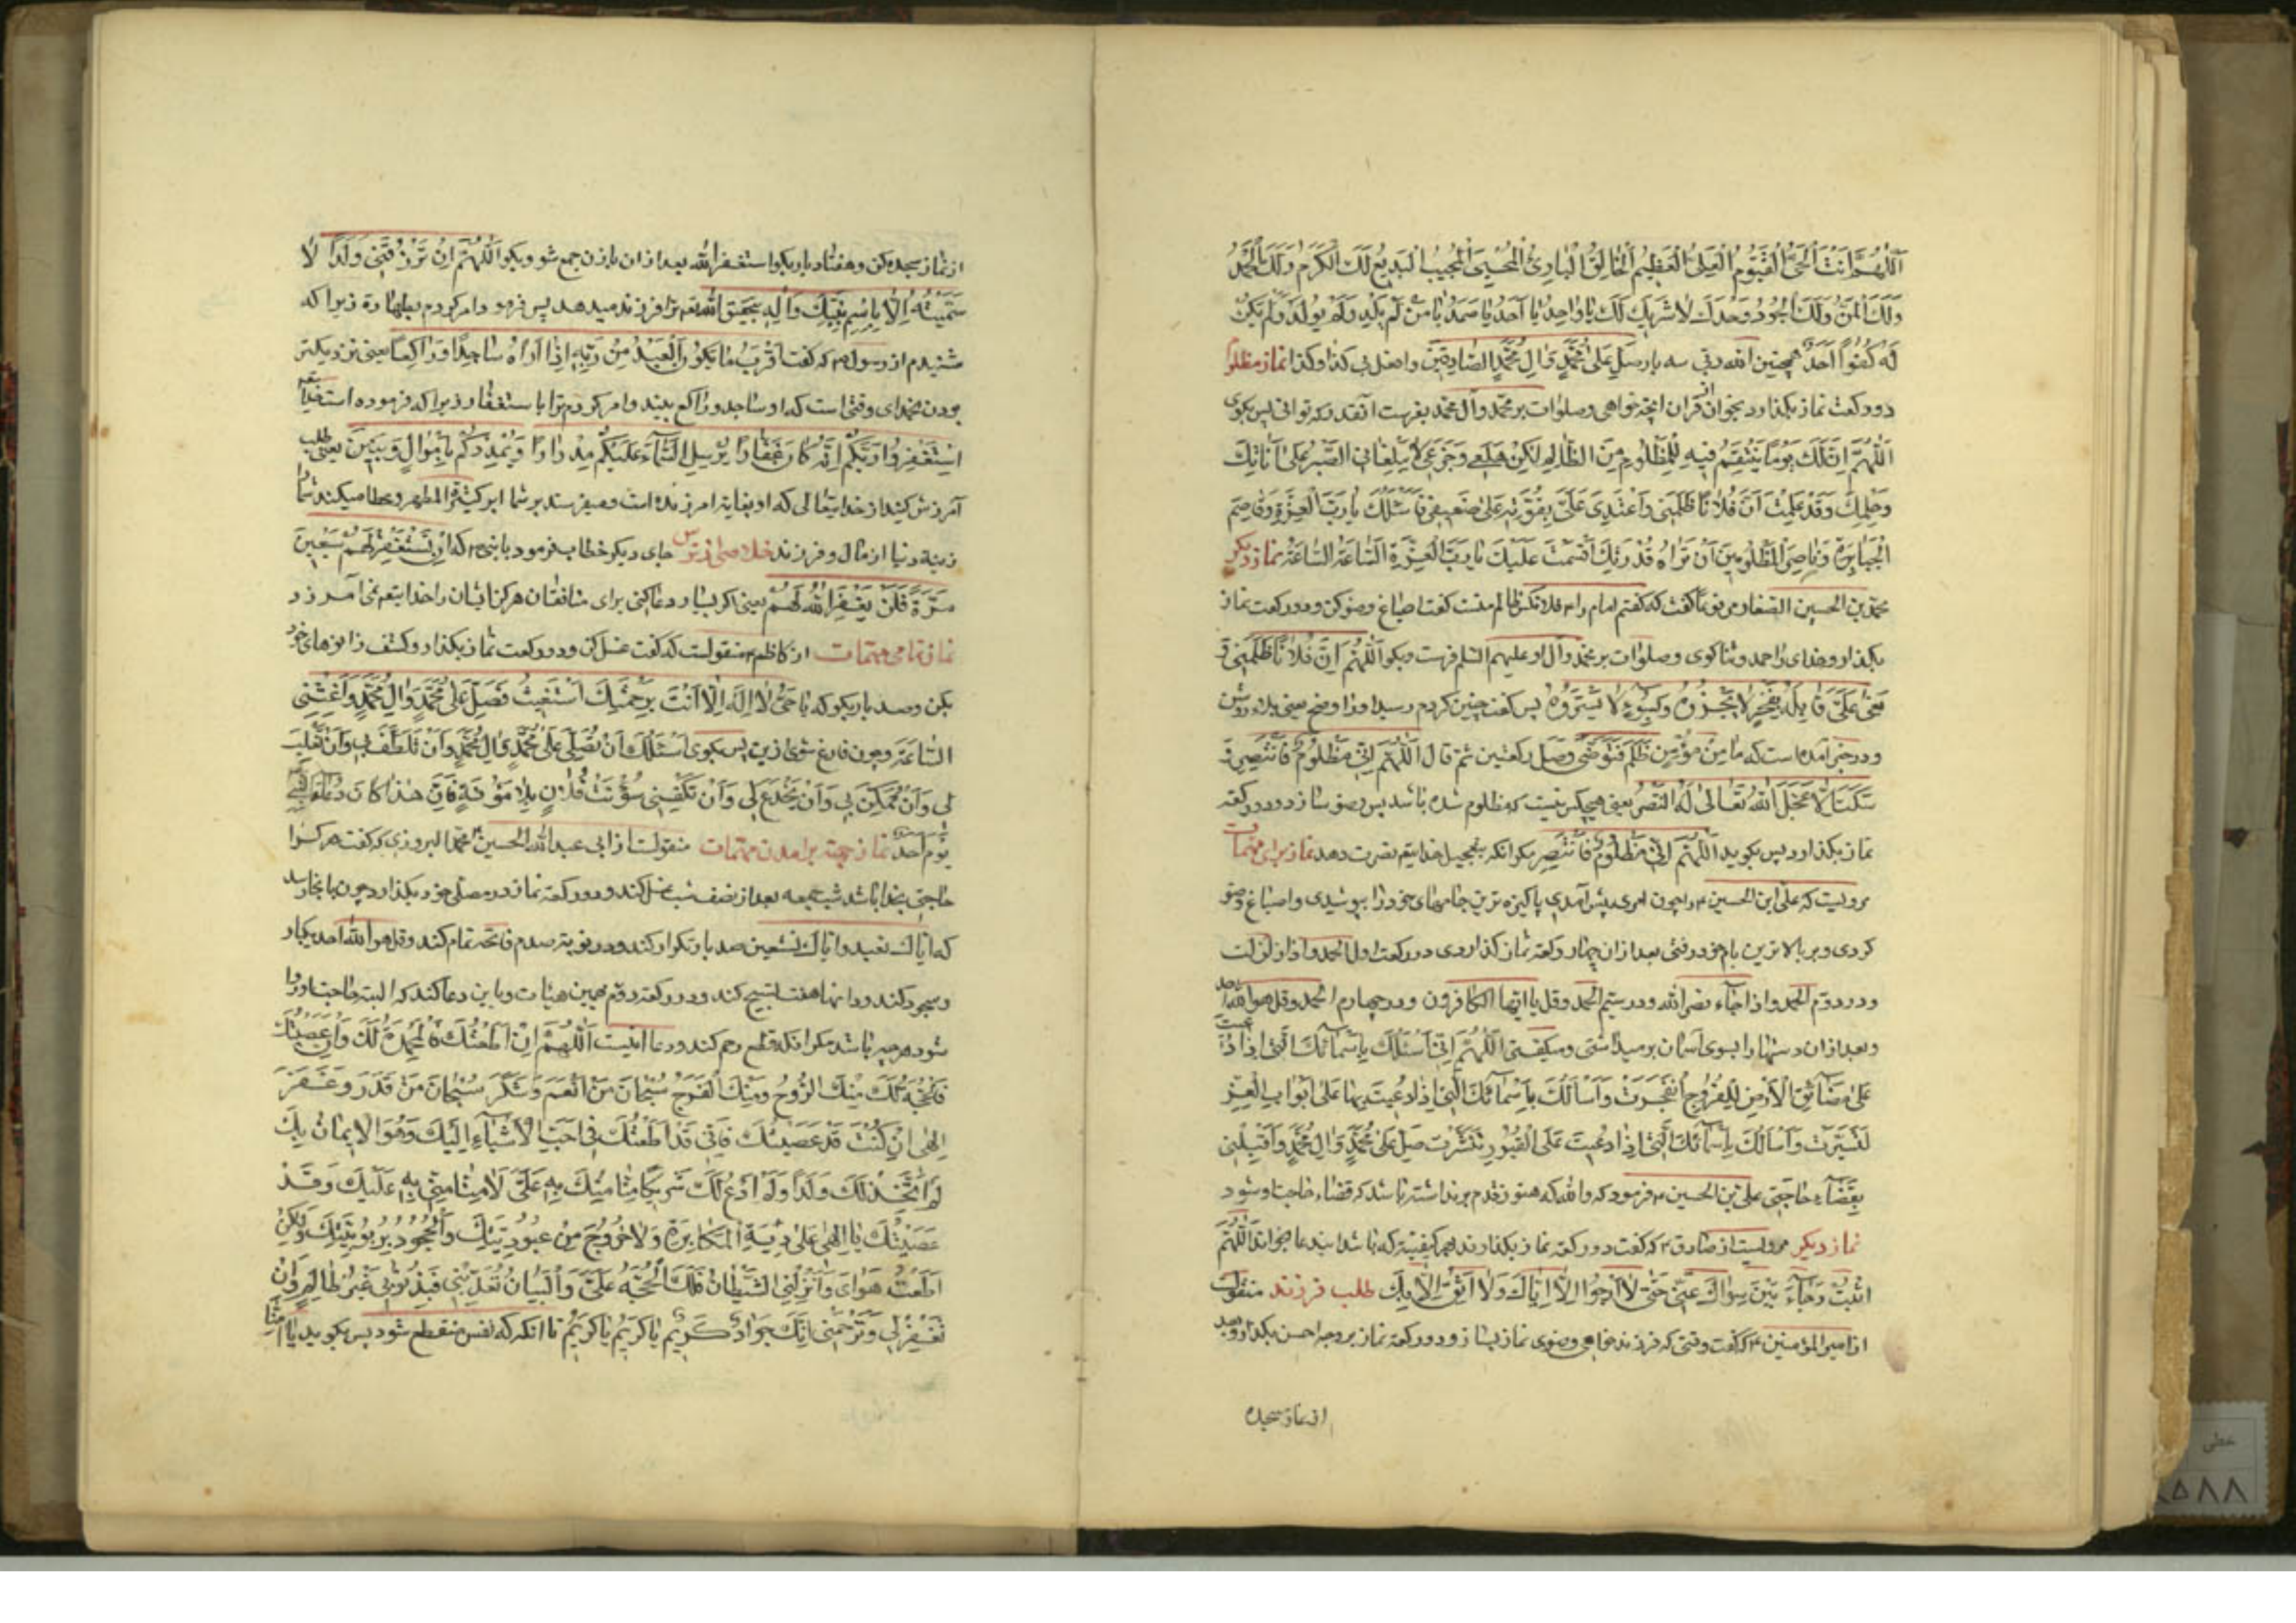 اَللّهُمَّ اَنْتَ الْحَیُّ الْقَیُّومُ الْعَلِیُّ الْعَظِیمُ الْخالِقُ الْبارِئُ الْمُحْیِی الْمُجیبُ الْبَدیعُ لَكَ الْكَرَمُ وَلَكَ الْحَمْدُ
وَلَكَ الْمَنُّ وَلَكَ الْجُودُ وَحْدَكَ لا شَریكَ لَكَ یا واحِدُ یا اَحَدُ یا صَمَدُ یا مَنْ لَمْ یَلِدْ وَلَمْ یُولَدْ وَلَمْ یَكُنْ
لَهُ كُفُواً اَحَدٌ همچنین الله ربی سه بار صَلِّ عَلی مُحَمَّدٍ وَالِ مُحَمَّدٍ الصّادِقینَ وافعل بی كذا وكذا نماز مظلوم
دو ركعت نماز بگذارد بخوان از قران انچه خواهی وصلوات بر محمد وآل محمد بفرست انقدر كه توانی پس بگوی
اَللّهُمَّ اِنَّ لَكَ یَوْماً یَنْتَقِمُ فیهِ لِلْمَظْلُومِ مِنَ الظّالِمِ لكِنْ هَلَعی وَجَزَعی لا یَبْلُغانِ الصَّبْرَ عَلی اَناتِكَ
وَحِلْمِكَ وَقَدْ عَلِمْتَ اَنَّ فُلاناً ظَلَمَنی وَاعْتَدی عَلَیَّ بِقُوَّتِهِ عَلی ضَعْفی فَاَسْئَلُكَ یا رَبَّ الْعِزَّةِ وَقاصِمَ
الْجَبابِرَةِ وَناصِرَ الْمَظْلُومینَ اَنْ تَراهُ قُدْرَتَكَ اَقْسَمْتُ عَلَیْكَ یا رَبَّ الْعِزَّةِ السّاعَةَ السّاعَةَ نماز دیگر
محمد بن الحسین الصفار مرفوعا گفت كه گفتم امام را ۴ فلانكس ظالم منست گفت اصباغ وضو كن ودو ركعت نماز
بگذار وخدای را حمد وثنا گوی وصلوات بر محمد وآل او علیهم السلم فرست وبگو اَللّهُمَّ اِنَّ فُلاناً ظَلَمَنی وَ
بَغی عَلَیَّ لا یَسْتُرُوهُ پس گفت چنین كردم رسید
ودر خبر آمده است كه ما مِنْ مُؤْمِنٍ ظُلِمَ فَتَوَضّی وَصَلّ ركعتین ثم قال اَللّهُمَّ اِنّی مَظْلُومٌ فَانْتَصِرْ وَ
سَكَتَ اِلّا عَجَّلَ اللهُ تَعالی لَهُ النَّصْرَ یعنی هیچكس نیست كه مظلوم شده باشد پس وضو سازد ودو ركعه
نماز بگذارد پس بگوید اَللّهُمَّ اِنّی مَظْلُومٌ فَانْتَصِرْ مگر انكه بتعجیل خدایتع نصرت دهد نماز برای مهمات
مرویست كه علی ابن الحسین ۴ را چون امری پیش آمدی پاكیزه ترین جامهای خود را بپوشیدی واصباغ وضو
كردی وبر بالاترین بام خود رفتی بعد از ان چهار ركعه نماز گذاردی در ركعت اول الحمد واذا زلزلت
ودر دوم الحمد واذا جآء نصر الله ودر سیّم الحمد وقل یا ایها الكافرون ودر چهارم الحمد وقل هو الله احد
وبعد از ان دستها را بسوی آسمان برمیداشتی ومیگفتی اَللّهُمَّ اِنّی اَسْئَلُكَ بِاَسْمآئِكَ الَّتی اِذا دُعِیَتْ
عَلی مَضآئِقِ الْاَرْضِ لِلْفُرُوجِ انْفَجَرَتْ وَاَسْاَلُكَ بِاَسْمآئِكَ الَّتی اِذا دُعِیَتْ بِها عَلی اَبْوابِ الْعُسْرِ
لَتَیَسَّرَتْ وَاَسْاَلُكَ بِاَسْمآئِكَ الَّتی اِذا دُعِیَتْ عَلَی الْقُبُورِ تَنَشَّرَتْ صَلِّ عَلی مُحَمَّدٍ وَالِ مُحَمَّدٍ وَاقْلِبْنی
بِقَضآءِ حاجَتی علی بن الحسین ۴ فرمود كه والله كه هنوز قدم برنداشته باشد كه قضاء حاجت او شود
نماز دیگر مرویست از صادق ۴ كه گفت دو ركعه نماز بگذارند بهر كیفیتی كه باشد این دعا بخواند اَللّهُمَّ
اثْبِتْ رَجآءَكَ عَنّی حَتّی لا اَرْجُوا اِلّا اِیّاكَ وَلا اَثِقُ اِلّا بِكَ طلب فرزند منقولست
از امیر المؤمنین ۴ كه گفت وقتی كه فرزند خواهی وضوی نماز بساز ودو ركعه نماز بر وجه احسن بگذار وبعد
از نماز سجده
از نماز سجده كن وهفتاد بار بگو استغفر الله بعد از ان با زن جمع شو وبگو اَللّهُمَّ اِنْ تَرْزُقَنی وَلَداً لا
سَمَّیْتُهُ اِلّا بِاِسْمِ نَبِیِّكَ وَآلِهِ بتحقیق الله تع ترا فرزند میدهد پس فرمود وامر كردم بطهارة زیرا كه
شنیدم از رسول ۴ كه گفت اَقْرَبُ ما یَكُونُ الْعَبْدُ مِنْ رَبِّهِ اِذا رَآهُ ساجِداً وَراكِعاً یعنی نزدیكتر
بودن بخدای وقتی است كه او ساجد وراكع بیند وامر كردم ترا باستغفار زیرا كه فرموده است خدایتعم
اِسْتَغْفِرُوا رَبَّكُمْ اِنَّهُ كانَ غَفّاراً یُرْسِلِ السَّمآءَ عَلَیْكُمْ مِدْراراً وَیُمْدِدْكُمْ بِاَمْوالٍ وَبَنینَ یعنی طلب
آمرزش كنید از خدایتعالی كه او بغایت امرزنده است ومیفرستد بر شما ابر كثیر المطر وعطا میكند شما را
زینة دنیا از مال وفرزند خلاصی از ترس جای دیگر خطاب فرمود با نبی ۴ كه اِنْ تَسْتَغْفِرْ لَهُمْ سَبْعینَ
مَرَّةً فَلَنْ یَغْفِرَ اللهُ لَهُمْ یعنی اگر بسیار دعا كنی برای منافقان هرگز ایشان را خدایتعم نمی آمرزد
نماز تمامی مهمات از كاظم ۴ منقولست كه گفت غسل كن ودو ركعت نماز بگذار وكشف زانوهای خود
بكن وصد بار بگو كه یا حَیُّ لا اِلهَ اِلّا اَنْتَ بِرَحْمَتِكَ اَسْتَغیثُ فَصَلِّ عَلی مُحَمَّدٍ وَالِ مُحَمَّدٍ وَاَغِثْنی
السّاعَةَ وچون فارغ شوی ازین پس بگوی اَسْئَلُكَ اَنْ تُصَلِّیَ عَلی مُحَمَّدٍ وَالِ مُحَمَّدٍ وَاَنْ تَلَطَّفَ بی وَاَنْ تَغْلِبَ
لی وَاَنْ تَمْكُرَ لی وَاَنْ تَخْدَعَ لی وَاَنْ تَكْفِیَنی مَؤُنَتَ فُلانٍ بِلا مَؤُنَةٍ فَاِنَّ هذا كانَ دُعآء النبی
یَوْمَ اُحُدٍ نماز جهة برآمدن مهمات منقولست از ابی عبد الله الحسین بن محمد البروزی كه گفت هر كرا
حاجتی بخدا باشد شب جمعه بعد از نصف شب غسل كند ودو ركعه نماز در مصلی خود بگذارد چون بانجا رسد
كه ایاك نعبد وایاك نستعین صد بار تكرار كند ودر نوبة صدم فاتحه تمام كند وقل هو الله احد یكبار
وسجود كند ودر انها هفت تسبیح كند ودر ركعه دوم بهمین هیئات وباین دعا كند كه البته حاجت او روا
شود هر چه باشد مگر انكه قطع رحم كند ودعا اینست اَللّهُمَّ اِنْ اَطَعْتُكَ فَالْمَحْمِدَةُ لَكَ وَاِنْ عَصَیْتُكَ
فَالْحُجَّةُ لَكَ مِنْكَ الرَّوْحُ وَمِنْكَ الْفَرَجُ سُبْحانَ مَنْ اَنْعَمَ وَشَكَرَ سُبْحانَ مَنْ قَدَرَ وَغَفَرَ
اِلهی اِنْ كُنْتُ قَدْ عَصَیْتُكَ فَاِنّی قَدْ اَطَعْتُكَ فی اَحَبِّ الْاَشْیآءِ اِلَیْكَ وَهُوَ الْایمانُ بِكَ
لَمْ اَتَّخِذْ لَكَ وَلَداً وَلَمْ اَدْعُ لَكَ شَریكاً مَنّاً مِنْكَ بِهِ عَلَیَّ لا مَنّاً مِنّی بِهِ عَلَیْكَ وَقَدْ
عَصَیْتُكَ یا اِلهی عَلی الْمُكابَرَةِ وَلا خُرُوجَ مِنْ عُبُودِیَّتِكَ وَلا جُحُودِ بِرُبُوبِیَّتِكَ وَلكِنْ
اَطَعْتُ هَوایَ وَاَزَلَّنِی الشَّیْطانُ فَلَكَ الْحُجَّةُ عَلَیَّ وَالْبَیانُ فَاِنْ تُعَذِّبْنی فَبِذُنُوبی غَیْرُ ظالِمٍ وَاِنْ
تَغْفِرْ لی وَتَرْحَمْنی اِنَّكَ جَوادٌ كَریمٌ یا كَریمُ یا كَریمُ تا انكه كه نفس منقطع شود پس بگوید یا آمِناً
خطی
۵۸۸